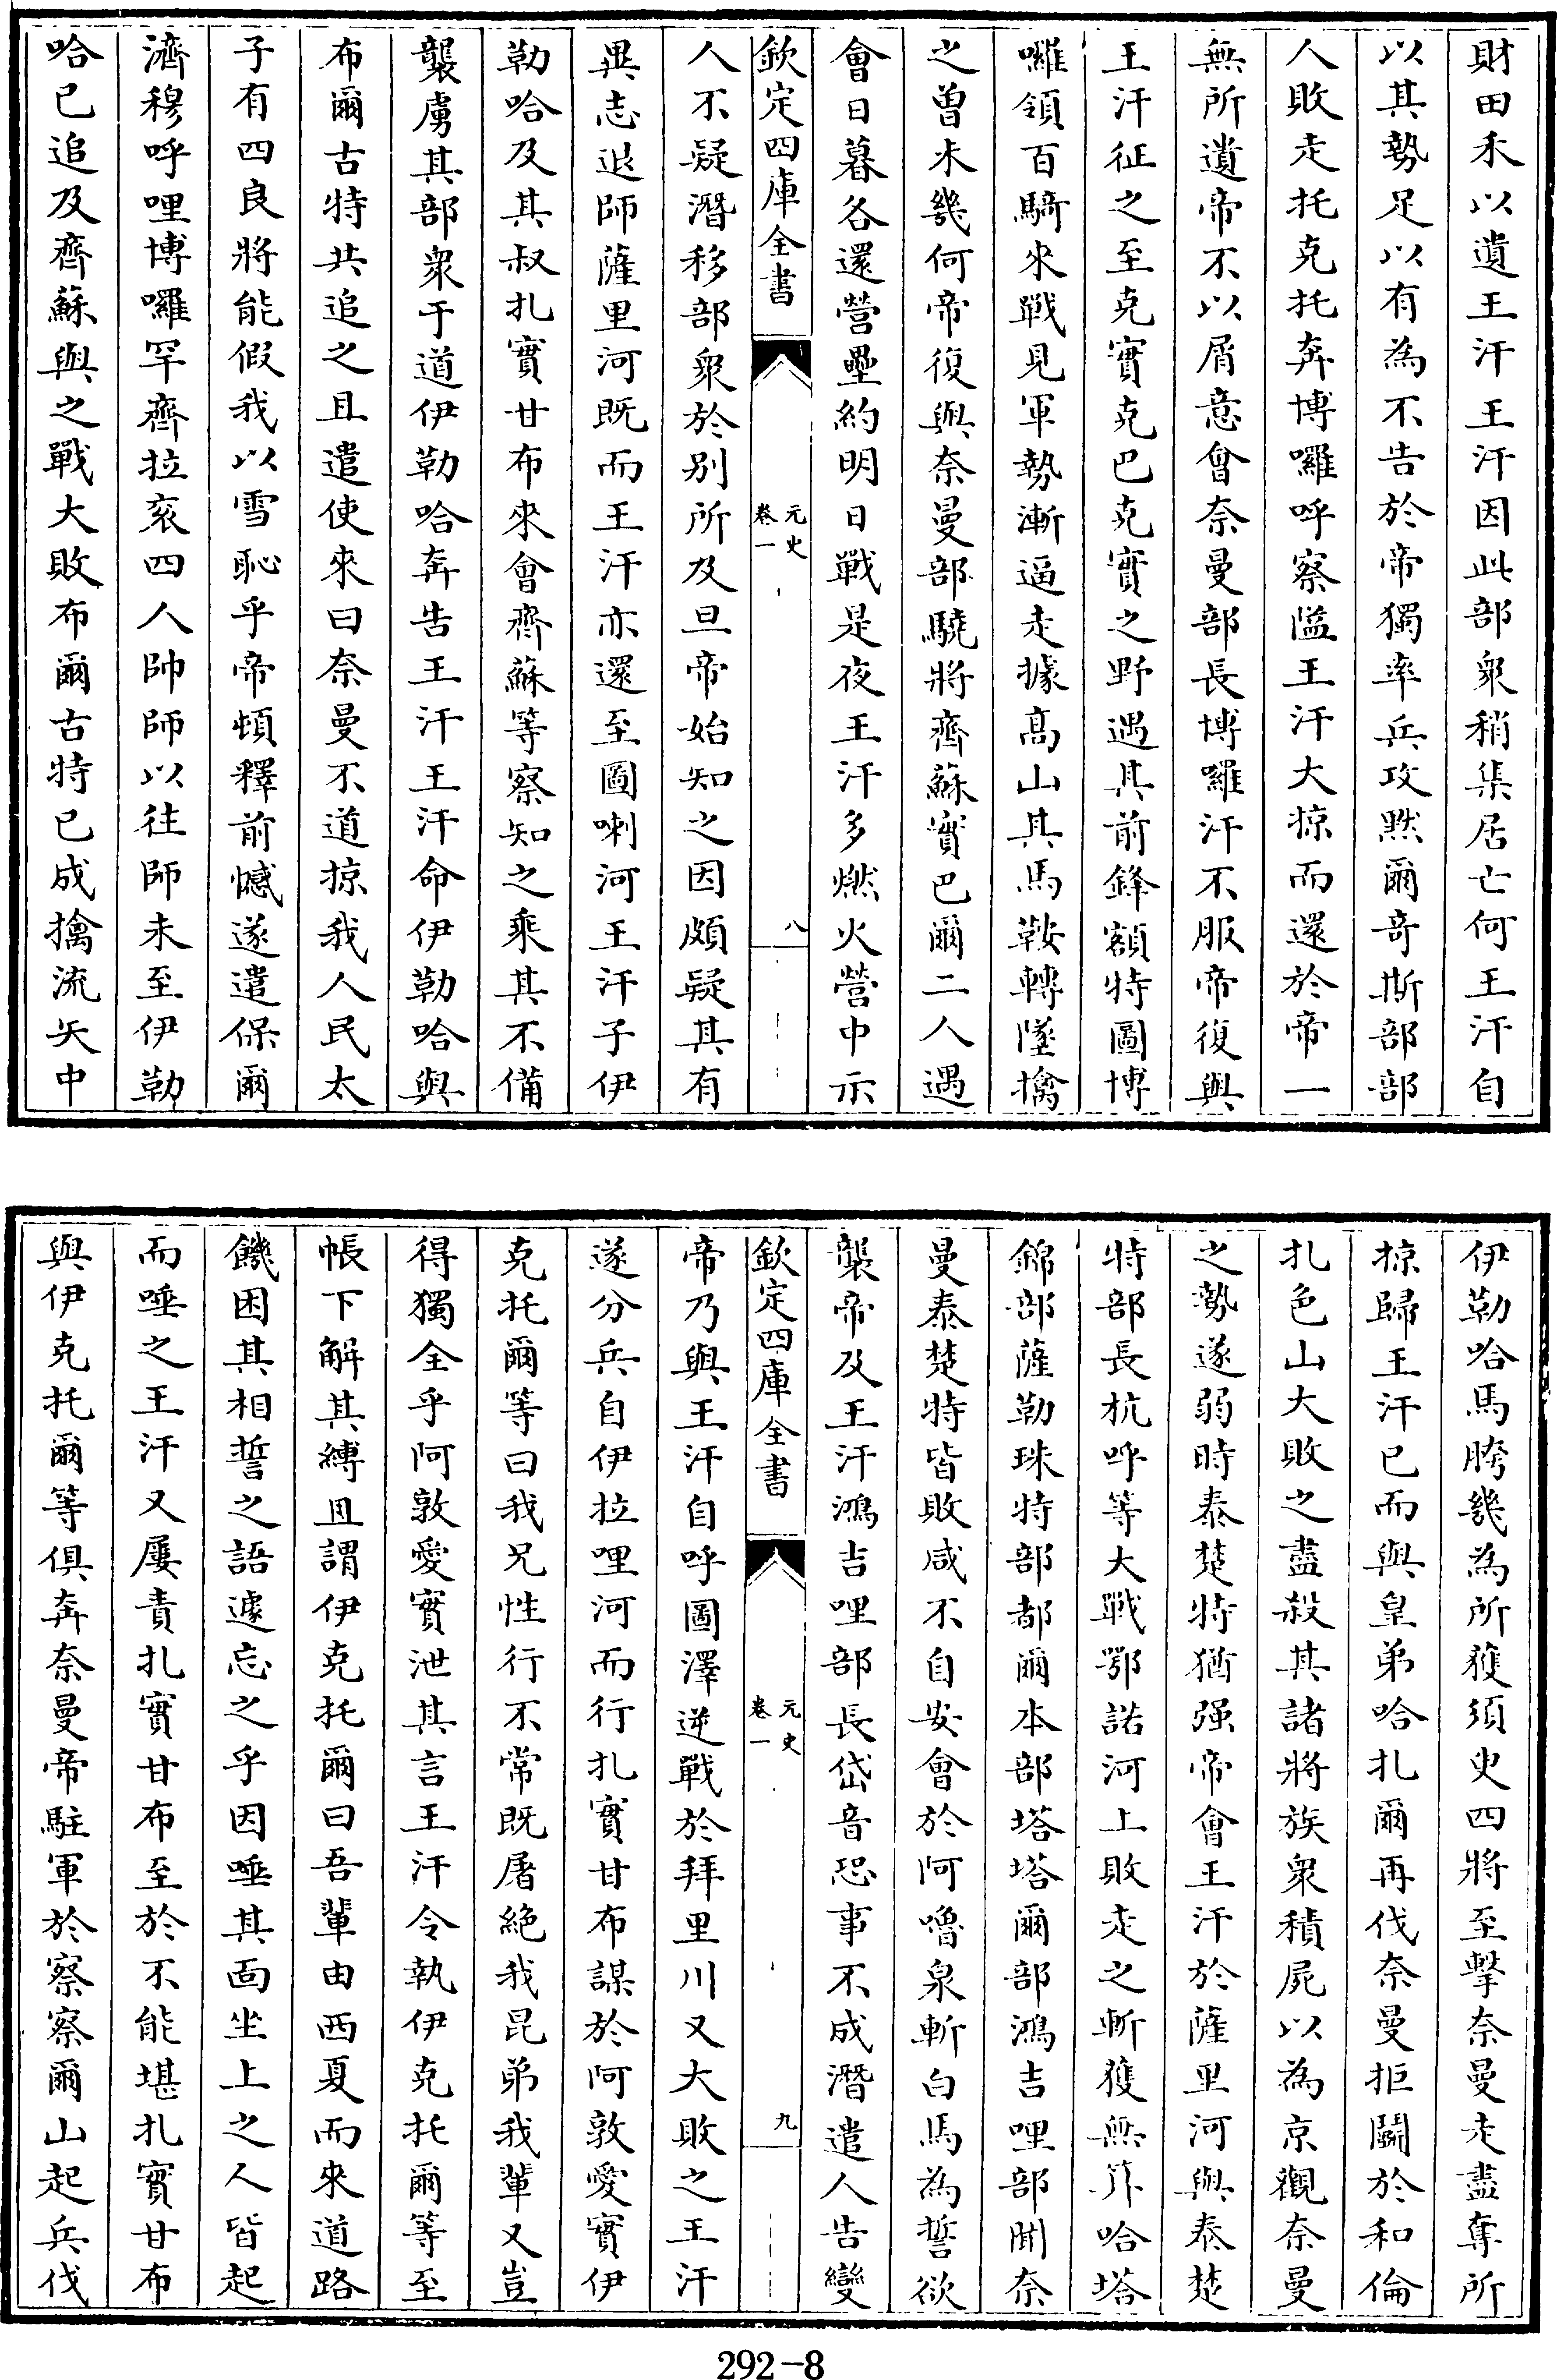 財田禾以遺王汗王汗因此部衆稍集居亡何王汗自
以其勢足以有為不告於帝獨率兵攻黙爾奇斯部部
人敗走托克托奔博囉呼察隘王汗大掠而還於帝一
無所遺帝不以屑意會奈曼部長博囉汗不服帝復與
王汗征之至克實克巴克實之野遇其前鋒額特圖博
囉領百騎來戰見軍勢漸逼走據髙山其馬鞍轉墜擒
之曽未幾何帝復與奈曼部驍將齊蘇實巴爾二人遇
會日暮各還營壘約明日戰是夜王汗多燃火營中示
欽定四庫全書
元史
卷一
八
人不疑潛移部衆於别所及旦帝始知之因頗疑其有
異志退師薩里河既而王汗亦還至圖喇河王汗子伊
勒哈及其叔扎實甘布來會齊蘇等察知之乘其不備
襲虜其部衆于道伊勒哈奔告王汗王汗命伊勒哈與
布爾古特共追之且遣使來曰奈曼不道掠我人民太
子有四良將能假我以雪恥乎帝頓釋前憾遂遣保爾
濟穆呼哩博囉罕齊拉衮四人帥師以往師未至伊勒
哈已追及齊蘇與之戰大敗布爾古特已成擒流矢中
伊勒哈馬胯幾為所獲須臾四將至擊奈曼走盡奪所
掠歸王汗已而與皇弟哈扎爾再伐奈曼拒鬬於和倫
扎色山大敗之盡殺其諸將族衆積屍以為京觀奈曼
之勢遂弱時泰楚特猶强帝會王汗於薩里河與泰楚
特部長杭呼等大戰鄂諾河上敗走之斬獲無筭哈塔
錦部薩勒珠特部都爾本部塔塔爾部鴻吉哩部聞奈
曼泰楚特皆敗咸不自安會於阿嚕泉斬白馬為誓欲
襲帝及王汗鴻吉哩部長岱音恐事不成潛遣人告變
欽定四庫全書
元史
卷一
九
帝乃與王汗自呼圖澤逆戰於拜里川又大敗之王汗
遂分兵自伊拉哩河而行扎實甘布謀於阿敦愛實伊
克托爾等曰我兄性行不常既屠絶我昆弟我輩又豈
得獨全乎阿敦愛實泄其言王汗令執伊克托爾等至
帳下解其縛且謂伊克托爾曰吾輩由西夏而來道路
饑困其相誓之語遽忘之乎因唾其面坐上之人皆起
而唾之王汗又屢責扎實甘布至於不能堪扎實甘布
與伊克托爾等俱奔奈曼帝駐軍於察察爾山起兵伐
292-8